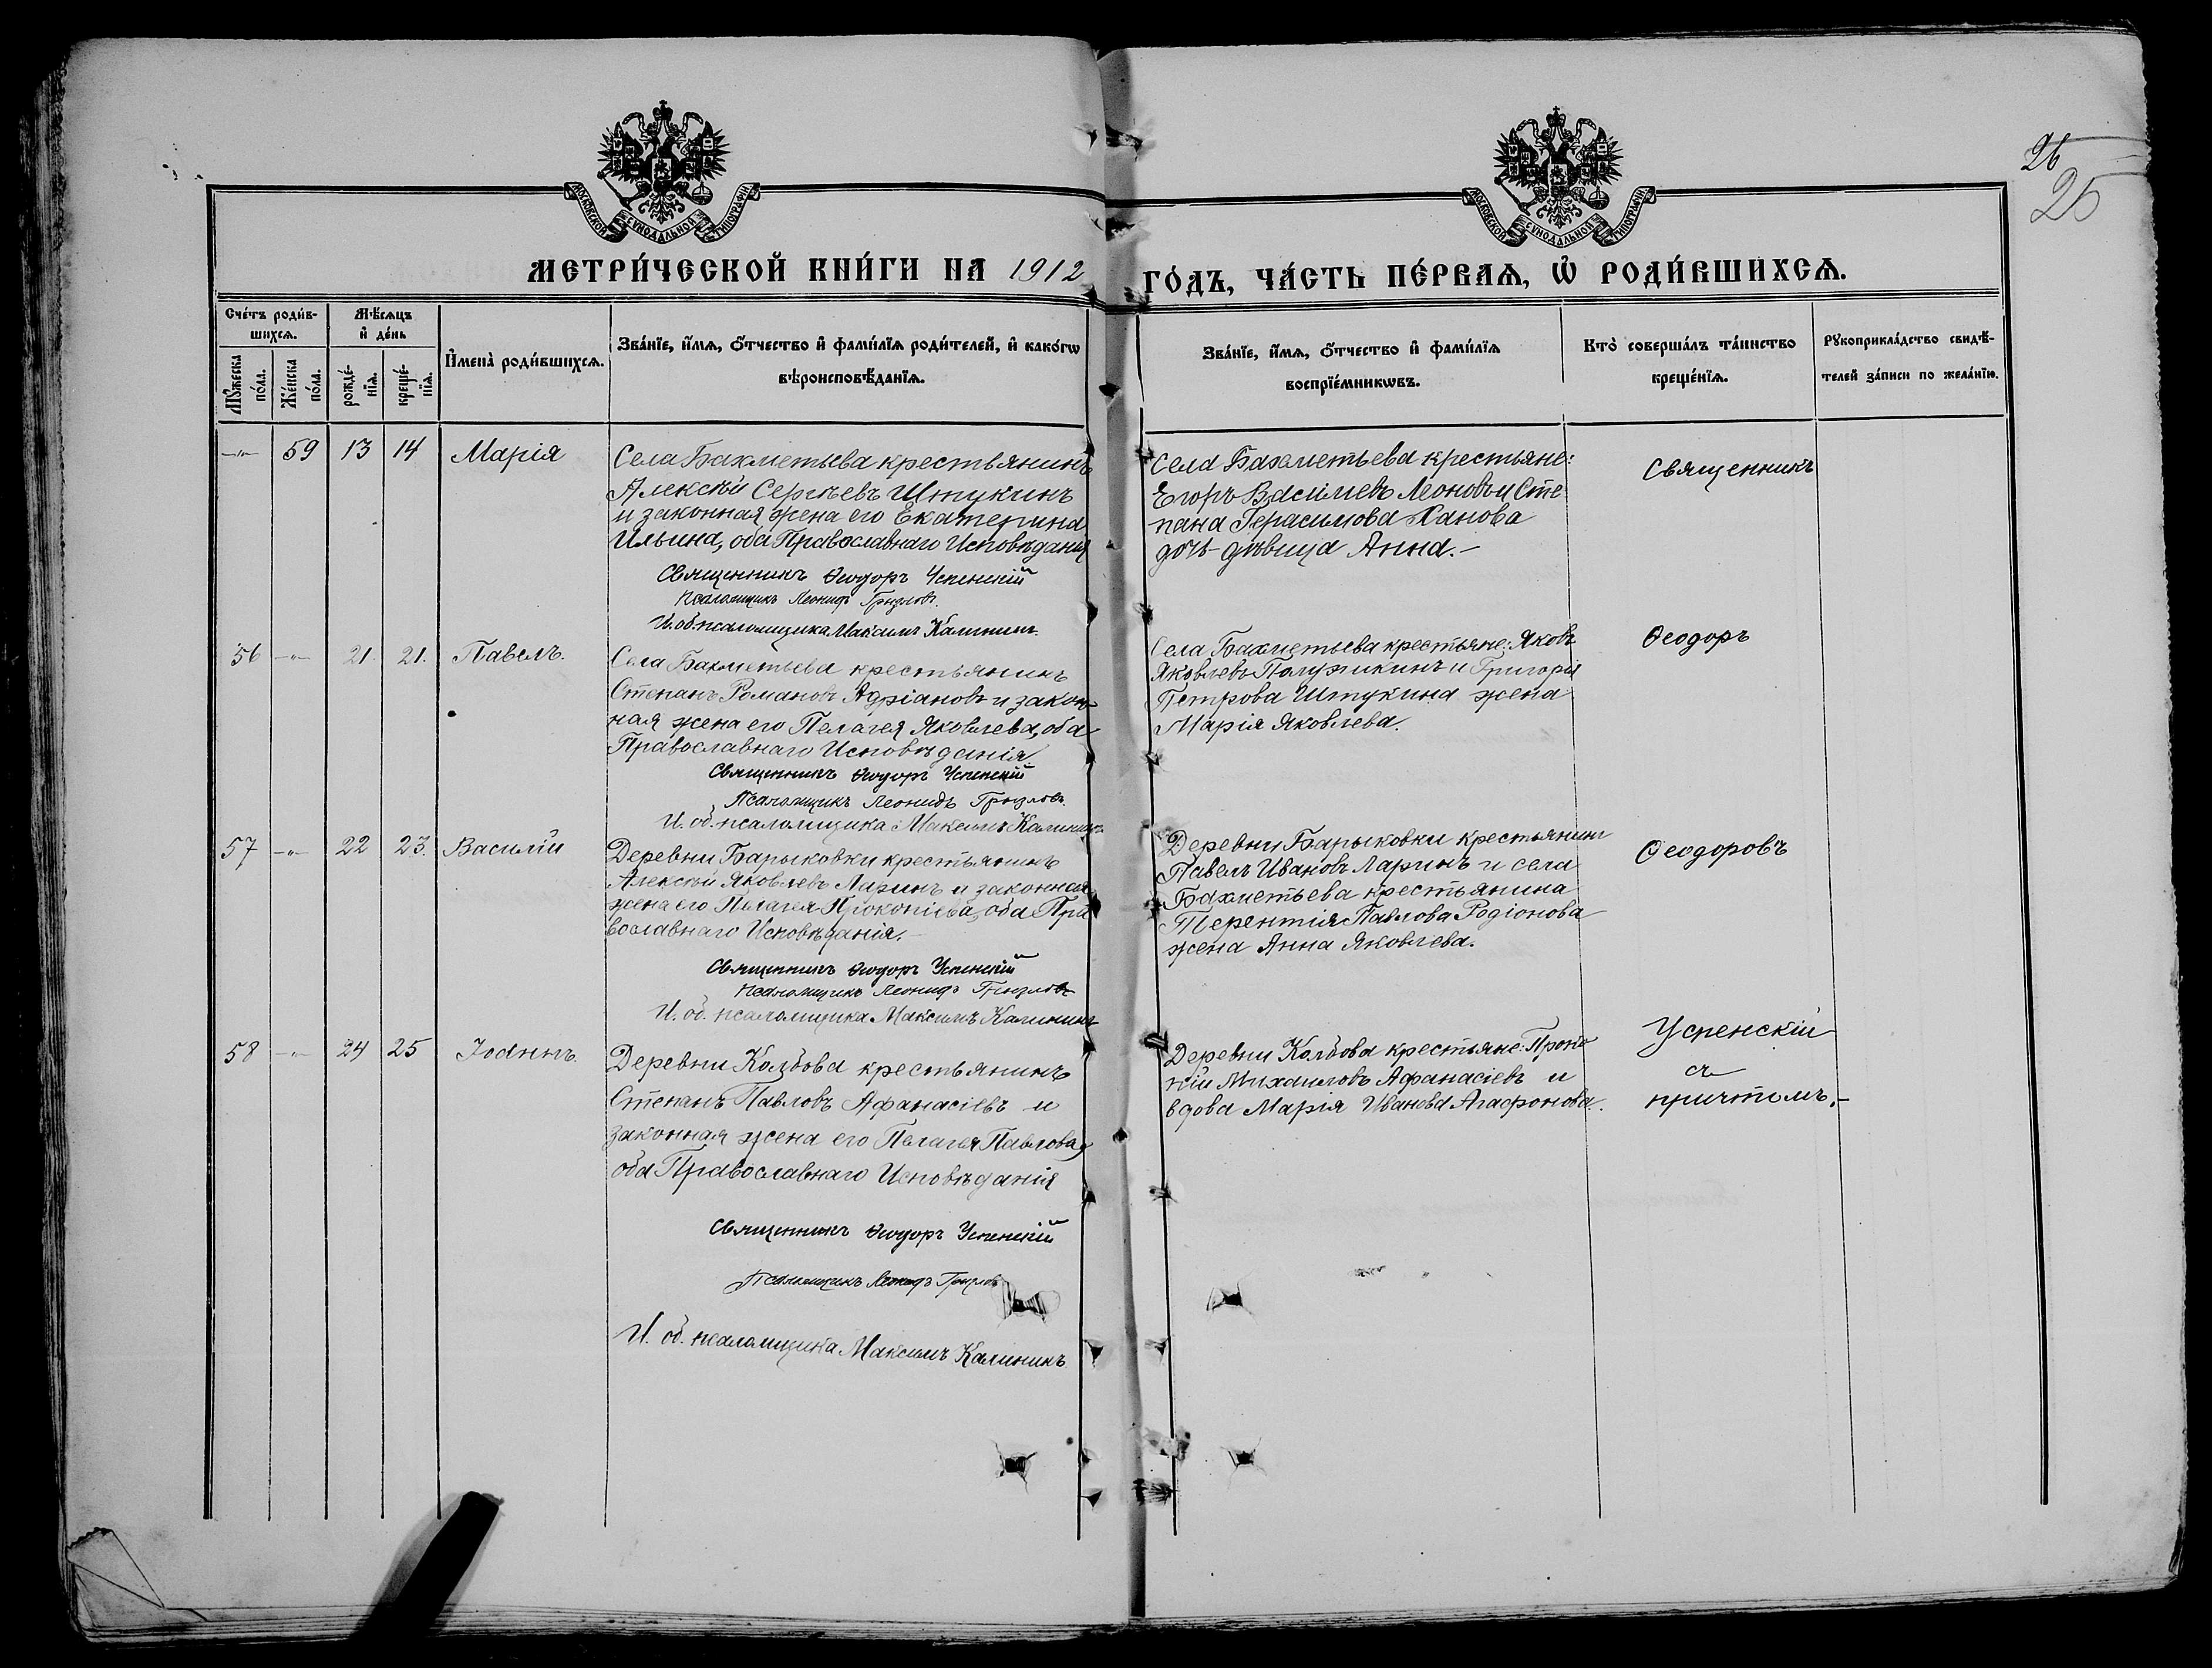 26
25
МОСКОВСКОЙ СѴНОДАЛЬНОЙ ТИПОГРАФІИ
МОСКОВСКОЙ СѴНОДАЛЬНОЙ ТИПОГРАФІИ
МЕТРИ́ЧЕСКОЙ КНИ́ГИ НА 1912 ГО́ДЪ, ЧА́СТЬ ПЕ́РВАѦ, Ѽ РОДИ́ВШИХСѦ.
Сче́тъ роди́в-
шихсѧ.
Мꙋ́жеска по́ла.
Же́нска по́ла.
Мѣ́сѧцъ
и҆ де́нь
рожде́-
нїѧ.
креще́-
нїѧ.
И҆мена̀ роди́вшихсѧ.
Зва́нїе, и҆́мѧ, ѻ҆́тчество и҆ фами́лїѧ роди́телей, и҆ како́гѡ
вѣроисповѣ́данїѧ.
Зва́нїе, и҆́мѧ, ѻ҆́тчество и҆ фами́лїѧ
воспрїе́мникѡвъ.
Кто̀ соверша́лъ та́инство
креще́нїѧ.
Рꙋкоприкла́дство свидѣ́-
телей за́писи по жела́нїю.
—"— 59 13 14 Марія
Села Бахметьева крестьянинъ
Алексѣй Сергѣевъ Штукинъ
и законная жена его Екатерина
Ильина, оба Православнаго Исповѣданія
Священникъ Ѳеодоръ Успенскій
Псаломщикъ Леонидъ Грузловъ.
И. об. псаломщика Максимъ Калининъ.
Села Бахметьева крестьяне:
Егоръ Васильевъ Леоновъ и Сте
пана Герасимова Ханова
дочь-дѣвица Анна.-
Священникъ
56 —"— 21. 21. Павелъ.
Села Бахметьева крестьянинъ
Степанъ Романовъ Адріановъ и закон-
ная жена его Пелагея Яковлева, оба
Православнаго Исповѣданія.
Священникъ Ѳеодоръ Успенскій
Псаломщикъ Леонидъ Грузловъ.
И. об. псаломщика Максимъ Калининъ
Села Бахметьева крестьяне: Яковъ
Яковлевъ и Григорія
Петрова Штукина жена
Марія Яковлева.
Ѳеодоръ
57 —"— 22 23. Василій
Деревни Барыковки крестьянинъ
Алексѣй Яковлевъ Ларинъ и законная
жена его Пелагея Прокопіева, оба Пра
вославнаго Исповѣданія.-
Священникъ Ѳеодоръ Успенскій
Псаломщикъ Леонидъ Грузловъ
И. об. псаломщика Максимъ Калининъ
Деревни Барыковки крестьянинъ
Павелъ Ивановъ Ларинъ и села
Бахметьева крестьянина
Терентія Павлова Родіонова
жена Анна Яковлева.
Ѳеодоровъ
58 —"— 24 25 Іоаннъ.
Деревни Колбова крестьянинъ
Степанъ Павловъ Афанасіевъ и
законная жена его Пелагея Павлова,
оба Православнаго Исповѣданія
Священникъ Ѳеодоръ Успенскій
Псаломщикъ Леонидъ Грузловъ
И. об. псаломщика Максимъ Калининъ
Деревни Колбова крестьяне: Проко
пій Михаиловъ Афанасіевъ и
вдова Марія Иванова Агафонова.
Успенскій
съ
причтомъ.-